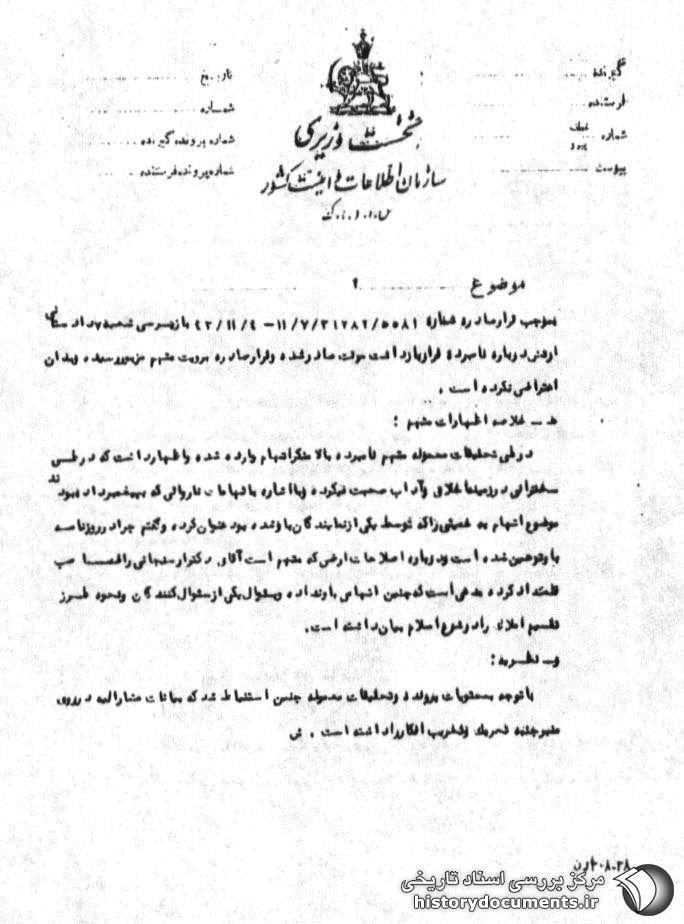 گیرنده
فرستنده
شماره عطف پیرو
پیوست
تاریخ
شماره
شماره پرونده گیرنده
شماره پرونده فرستنده
نخست وزیری
سازمان اطلاعات و امنیت کشور
س.ا.و.ا.ک
موضوع ۲
بموجب قرار صادره شماره بازپرسی شعبه دادستانی
ارتش درباره نامبرده قرار بازداشت موقت صادر شده و قرار صادره برویت متهم مزبور رسیده و بدان
اعتراض نکرده است .
هـ ـ خلاصه اظهارات متهم :
در طی تحقیقات معموله متهم نامبرده بالا منکر اتهام وارده شده و اظهار داشت که در طی
سخنرانی در زمینه اخلاق و آداب صحبت میکرده و با اشاره باتهامات ناروائی که به پیغمبر داده بودند
موضوع اتهام به خمینی را که توسط یکی از نمایندگان باو شده بود عنوان کرده و گفتم چرا در روزنامه
باو توهین شده است و درباره اصلاحات ارضی که متهم است آقای دکتر ارسنجانی را
قلمداد کرده مدعی است که چنین اتهامی باو نداده و بسئوال یکی از سئوال کنندگان و نحوه طرز
تقسیم املاک را در شرع اسلام بیان داشته است.
و ـ نظریه :
با توجه بمحتویات پرونده و تحقیقات معموله چنین استنباط شد که بیانات مشارالیه در روی
منبر جنبه تحریک و تخریب افکار را داشته است . ش
مرکز بررسی اسناد تاریخی
historydocuments.ir